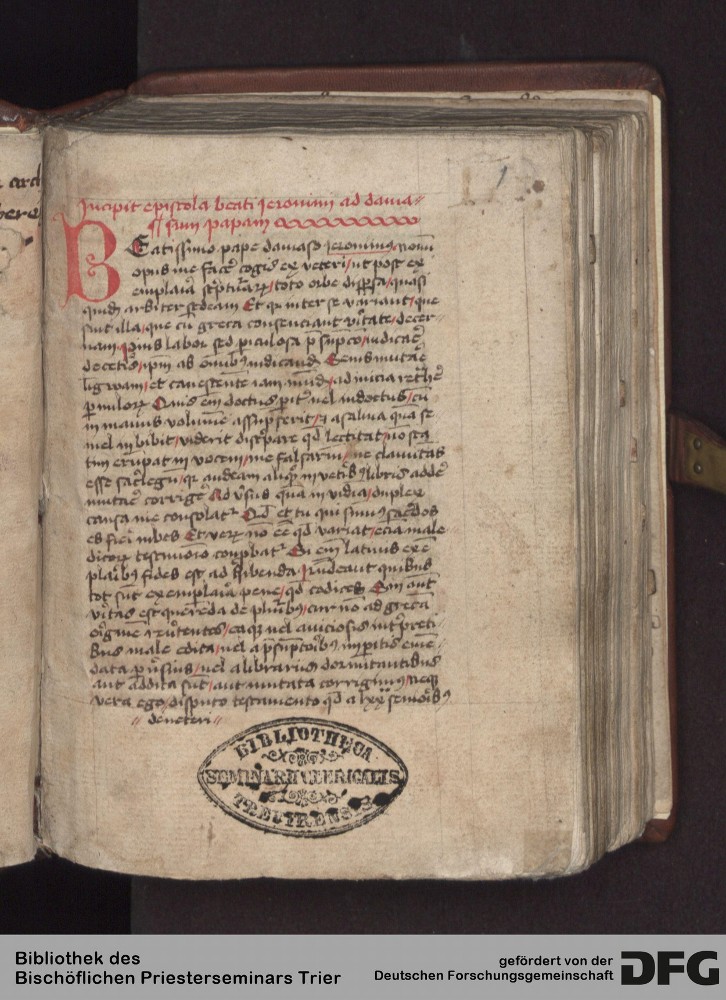 Incipit epistola beati Jeronimi ad dama//
sum papam
BEatissimo pape damaso Jeronimus nouū
opus me facē cogis ex veteri / ut post ex
emplaria scripturaꝝ toto orbe dispersa / quasi
quidā arbiter sedeam Et qꝛ inter se variant / que
sint illa / que cū greca consenciant v̓itate / decer
nam. pius labor sed piculosa p̄sūpcō / iudicaꝛ̄
de ceteris / ip̄m ab omībꝰ iudicandū Senis mutaꝛ̄
ligwam / et canescentē iam mūdū / ad inicia
paruuloꝝ Quis em̄ doctus pit̓ uel indoctus / cū
in manus volumē assūpserit / a saliua quā se
mel inbibit / viderit discrepare qd̓ lectitat / nō sta
tim erūpat in vocem / me falsariū / me clamitas
esse sacrilegū / qꝛ audeam aliqꝫ in vetībꝰ libris addē
mutaꝛ̄ corrigē Ad v̓sus quā inuidiā / duplex
causa me consolat̓ qd̓ et tu qui sūmꝰ sacerdos
es fieri iubes Et verū nō eē qd̓ variat / ecia male
dicoꝝ testimōio conpbat̓ Si em̄ latinis exē
plaribꝰ fides est adhibenda / rn̄deant quibus
tot sūt exemplaria pene / qd̓ codices Sin aūt
v̓itas est querēda de plurībꝰ / cur nō ad grecā
origīnē reu̓tentes / ea que uel a viciosis int̓preti
bus male edita / uel a p̄sūptōribꝰ inperitis emē
data pu̓sius / uel a librariis dormitantibus
aut addita sūt / aut mutata corrigimꝰ Neqꝫ
vero ego disputo testamento qd̓ a lxx seniorībꝰ
// de veteri //
1
BIBLIOTHECA
SEMINARII CLERICALIS
TREVIRENSIS
Bibliothek des
Bischöflichen Priesterseminars Trier
gefördert von der
Deutschen Forschungsgemeinschaft
DFG